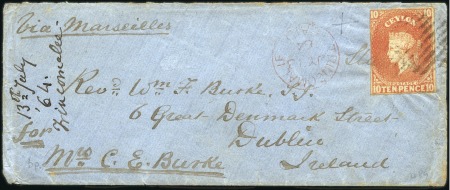 Via Marseilles
10 CEYLON 10
POSTAGE
10 TENPENCE 10
13th July
'64.
Trincomalee
Revd Wm F. Burke,
6 Great Denmark Street
Dublin
Ireland
For
Mrs C. E. Burke